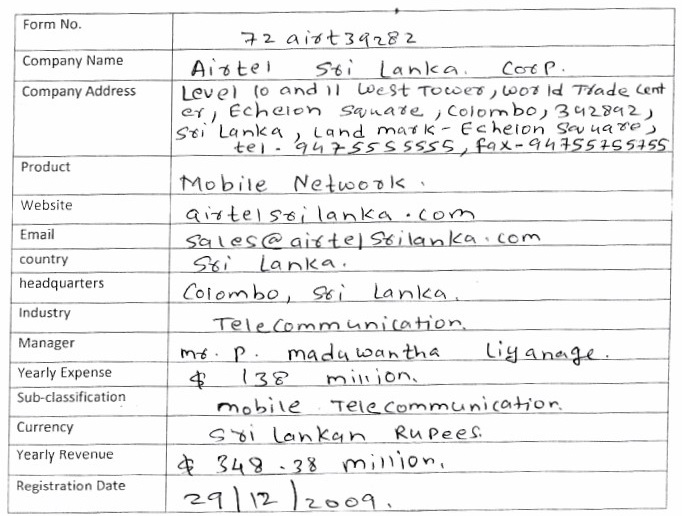 Form No. 72 airt39282
Company Name Airtel Sri Lanka. Corp.
Company Address Level 10 and 11 West Tower, World Trade Cent
er, Echelon Square, Colombo, 392892,
Sri Lanka, Land mark - Echelon Square,
tel - 94755555555, fax - 94755755755
Product Mobile Network.
Website airtelsrilanka.com
Email sales@airtelsrilanka.com
country Sri Lanka.
headquarters Colombo, Sri Lanka.
Industry Telecommunication.
Manager Mr. P. maduwantha Liyanage.
Yearly Expense $ 138 million.
Sub-classification mobile Telecommunication.
Currency Sri Lankan Rupees.
Yearly Revenue $ 348.38 million.
Registration Date 29/12/2009.